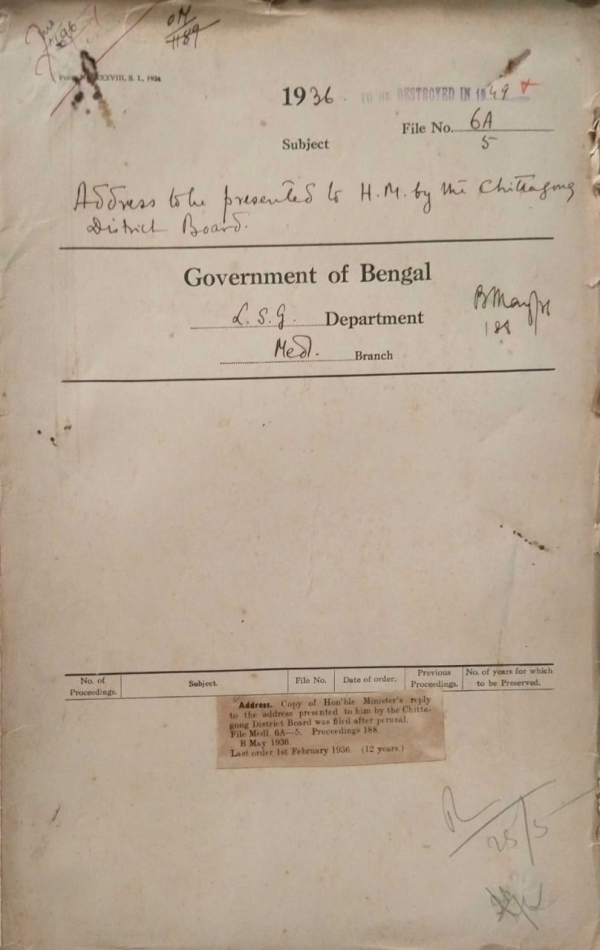 OM
1189
XXVIII, S. I., 1934
1936. TO BE DESTROYED IN 1949
File No. 6A
5
Subject
Address to be presented to H.M. by the Chittagong
District Board.
Government of Bengal
L.S.G. Department
B May/36
188
Medl. Branch
No. of Proceedings. Subject. File No. Date of order. Previous Proceedings. No. of years for which to be Preserved.
Address. Copy of Hon'ble Minister's reply
to the address presented to him by the Chitta-
gong District Board was filed after perusal.
File Medl. 6A—5. Proceedings 188
B May 1936.
Last order 1st February 1936. (12 years.)
25/5